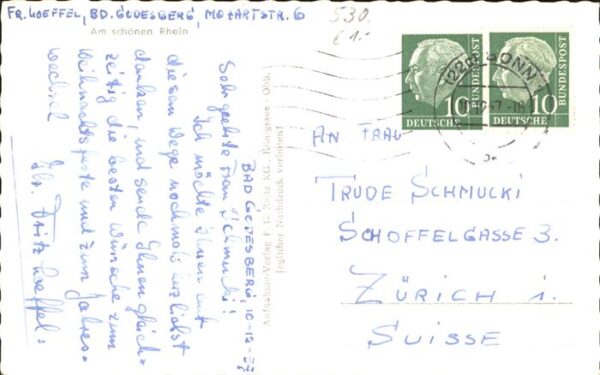 FR. LOEFFEL, BD. GODESBERG, MOZARTSTR. 6
530.
€ 1.-
Am schönen Rhein
BAD GODESBERG, 10-12-57
Sehr geehrte Frau Schmucki!
Ich möchte Ihnen auf
diesem Wege nochmals herzlichst
danken, und sende Ihnen gleich=
zeitig die besten Wünsche zum
Weihnachtsfeste und zum Jahres=
wechsel
Ihr Fritz Loeffel.
Aufnahme-Verlag
Jeglicher Nachdruck verboten!
(22c) BONN
10
DEUTSCHE
BUNDESPOST
10
DEUTSCHE
BUNDESPOST
AN FRAU
TRUDE SCHMUCKI
SCHOFFELGASSE 3.
ZÜRICH 1.
SUISSE